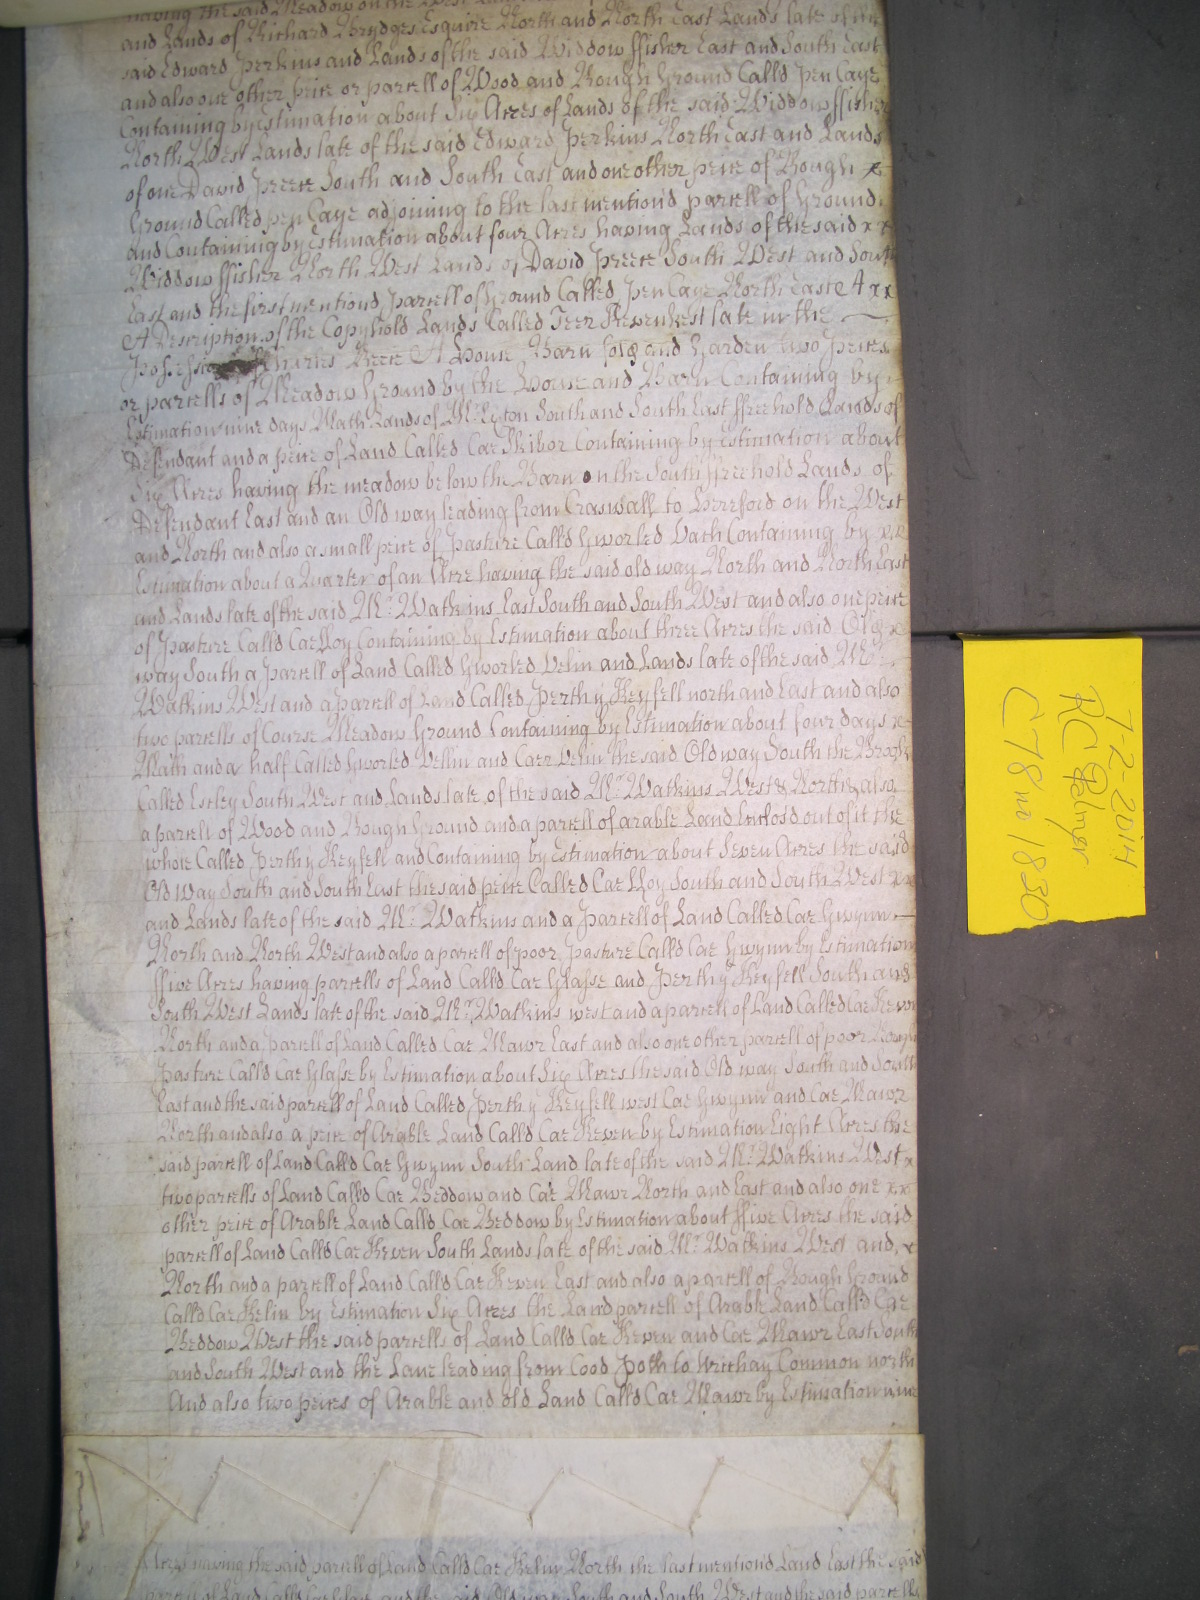 having the said Meadow on the West
and Lands of Richard Brydges Esquire North and North East Lands late of the
said Edward Perkins and Lands of the said Widdow ffisher East and South East
and also one other peice or parcell of Wood and Rough Ground Calld Pen Caye
Containing by Estimation about Six Acres of Lands of the said Widdow ffisher
North West Lands late of the said Edward Perkins North East and Lands
of one David Preece South and South East and one other peice of Rough x
Ground Called pen Caye adjoining to the last mentiond parcell of Ground
and Containing by Estimation about four Acres having Lands of the said x x
Widdow ffisher North West Lands of David Preece South West and South
East and the first mentiond parcell of Ground Called Pen Caye North East x x
A Description of the Copyhold Lands Called Teer Kevenhest late in the
Possession of Charles Beese A House Barn fold and Garden two peices
or parcells of Meadow Ground by the House and Barn Containing by
Estimation nine days Math Lands of Mr. Eyton South and South East ffreehold Lands of
Defendant and a peice of Land Called Cae Skibor Containing by Estimation about
Six Acres having the meadow below the Barn on the South ffreehold Lands of
Defendant East and an Old way leading from Craswall to Hereford on the West
and North and also a small peice of pasture Calld Gworled Vach Containing by x x
Estimation about a Quarter of an Acre having the said old way North and North East
and Lands late of the said Mr. Watkins East South and South West and also one peice
of Pasture Calld Cae Lloy Containing by Estimation about three Acres the said Old x
way South a Parcell of Land Called Gworled Velin and Lands late of the said Mr.
Watkins West and a parcell of Land Called Perth y Keyfell north and East and also
two parcells of Course Meadow Ground Containing by Estimation about four days x
Math and a half Called Gworled Vellin and Caer Velin the said Old way South the Brook
Called Escley South West and Lands late of the said Mr. Watkins West & North & also
a parcell of Wood and Rough Ground and a parcell of arable Land Enclosd out of it the
whole Called Perth y Keyfell and Containing by Estimation about Seven Acres the said
Old Way South and South East the said peice Called Cae Lloy South and South West x x
and Lands late of the said Mr. Watkins and a Parcell of Land Called Cae Gwynn
North and North West and also a parcell of poor Pasture Calld Cae Gwynn by Estimation
ffive Acres having parcells of Land Calld Cae Glasse and Perth y Keyfell South and
South West Lands late of the said Mr. Watkins west and a parcell of Land Called Cae Keven
North and a parcell of Land Called Cae Mawr East and also one other parcell of poor Rough
Pasture Calld Cae Glasse by Estimation about Six Acres the said Old way South and South
East and the said parcell of Land Called Perth y Keyfell west Cae Gwynn and Cae Mawr
North and also a peice of Arable Land Calld Cae Keven by Estimation Eight Acres the
said parcell of Land Calld Cae Gwynn South Land late of the said Mr. Watkins West x
two parcells of Land Calld Cae Beddow and Cae Mawr North and East and also one x x
other peice of Arable Land Calld Cae Beddow by Estimation about ffive Acres the said
parcell of Land Calld Cae Keven South Lands late of the said Mr. Watkins West and x
North and a parcell of Land Calld Cae Keven East and also a parcell of Rough Ground
Calld Cae Kelin by Estimation Six Acres the Land parcell of Arable Land Calld Cae
Beddow West the said parcells of Land Calld Cae Keven and Cae Mawr East South
and South West and the Lane leading from Cood Poth to Common north
And also two peices of Arable and old Land Calld Cae Mawr by Estimation nine
Acres having the said parcell of Land Calld Cae Kelin North the last mentiond Land East the said
parcell of Land Calld and the said Old way South and South West and the said parcells
7-2-2014
RC Palmer
C 78 no 1830